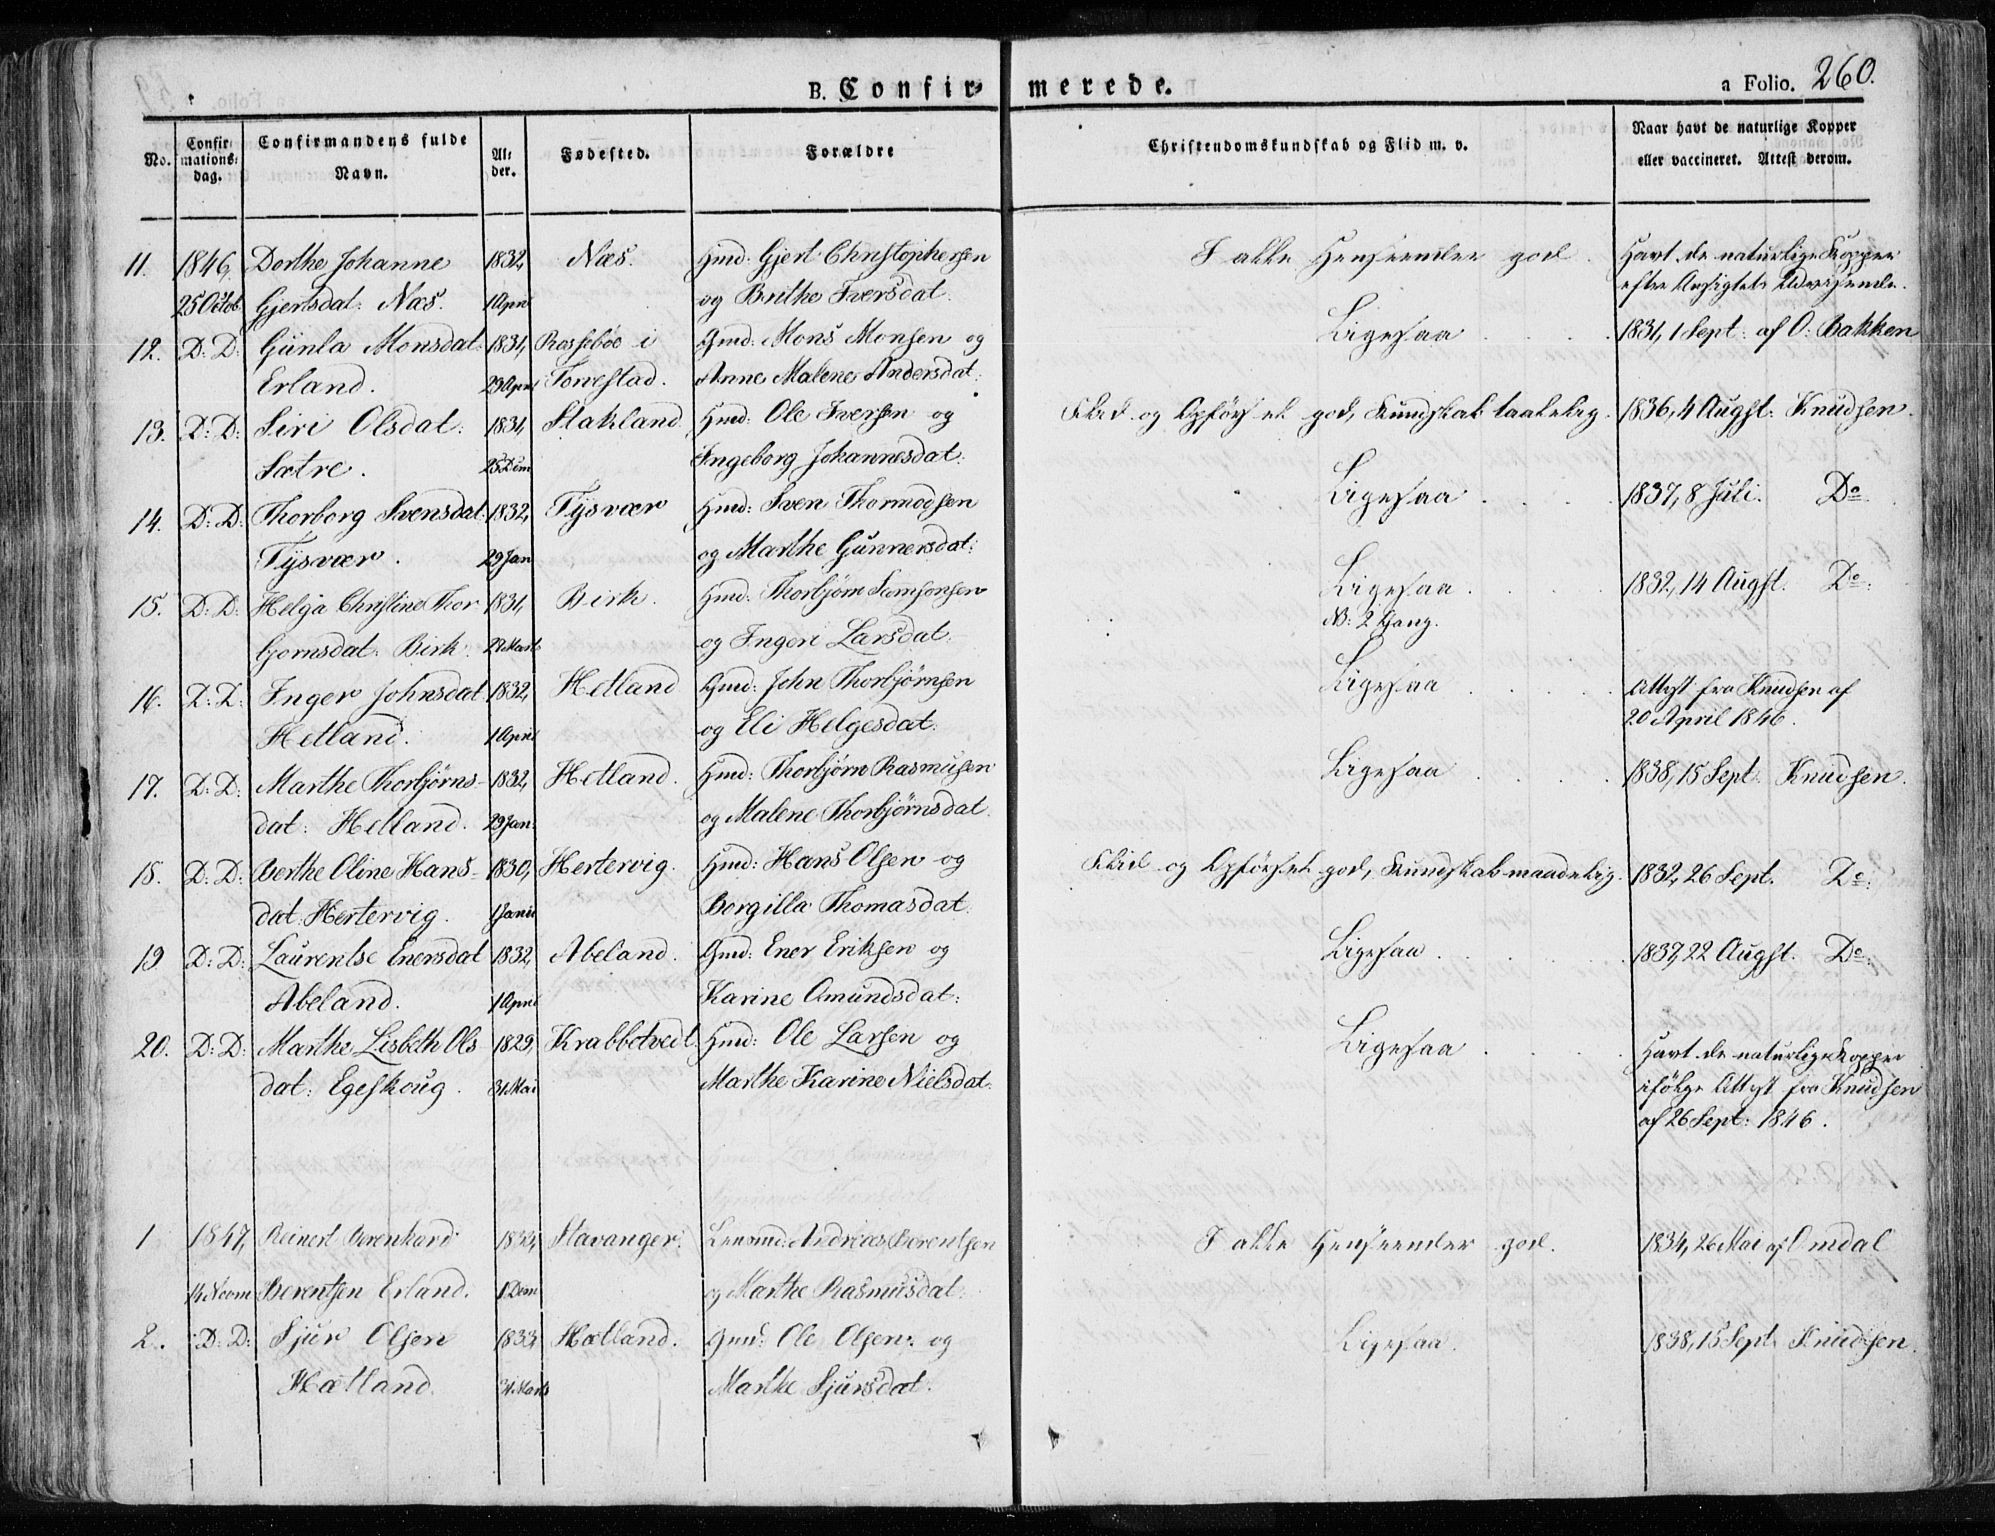 B. Confirmerede. a Folio. 260.
No. Confirmationsdag. Confirmandens fulde Navn. Alder. Fødested. Forældre Christendomskundskab og Flid m. v. Naar havt de naturlige Kopper eller vaccineret. Attest derom.
11. 1846, Dorthe Johanne 1832, Næs. Gmd: Gjert Christophersen I alle Henseender god. Havt de naturlige Kopper
25 Octob. Gjertsdat: Næs. 1 April og Brithe Iversdat. efter Ansigtets Udviisende.
12. D: D: Gunla Monsdat: 1831, Rossebøe i Gmd: Mons Monsen og Ligesaa 1831, 1 Sept: af O: Bakken
Erland. 23 April Torvestad. Anne Malene Andersdat:
13. D: D: Siri Olsdat: 1831, Stakland Hmd: Ole Iversen og Flid og Opførsel god, Kundskab taalelig. 1836, 4 Augst: Knudsen.
Sætre. 25 Dcem Ingeborg Johannesdat:
14. D: D: Thorborg Svensdat: 1832, Tysvær Hmd: Sven Thormodsen Ligesaa 1837, 8 Juli. Do
Tysvær. 29 Jan og Marthe Gunnersdat:
15. D: D. Helga Christine Thor 1831, Birk. Hmd: Thorbjørn Samsonsen Ligesaa 1832, 14 Augst. Do:
bjornsdat: Birk. 27 Marts og Ingeri Larsdat: NB: 2 Gang.
16. D: D: Inger Johnsdat 1832, Hetland Gmd: John Thorbjørnsen Ligesaa Attest fra Knudsen af
Hetland. 1 April og Eli Helgesdat: 20 April 1846.
17. D: D: Marthe Thorbjørns- 1832, Hetland. Hmd: Thorbjørn Rasmusen Ligesaa 1838, 15 Sept. Knudsen.
dat: Hetland. 29 Jan: og Malene Thorbjørnsdat.
18. D: D: Berthe Oline Hans- 1830, Hertervig. Hmd: Hans Olsen og Flid og Opførsel god, Kundskab maadelig. 1832, 26 Sept. Do:
dat: Hertervig. 1 Januar Borgilla Thomasdat:
19 D: D: Laurentse Enersdat 1832, Abeland. Gmd: Ener Eriksen og Ligesaa 1837, 22 Augst. Do:
Abeland. 1 April Karine Amundsdat:
20. D: D: Marthe Lisbeth Ols 1829, Krabbetvedt. Hmd: Ole Larsen og Ligesaa Havt de naturlige Kopper
dat: Egeskoug. 31 Mai Marthe Karine Nielsdat: ifølge Attest fra Knudsen
af 26 Sept: 1846.
1 1847, Reinert Berenhard 1832, Stavanger. Lensmd: Andreas Berentsen I alle Henseender god. 1834, 26 Mai af Omdal
14 Novm Berentsen Erland. 1 Dcem og Marthe Rasmusdat:
2. D: D: Sjur Olsen 1833, Hætland. Gmd: Ole Olsen og Ligesaa. 1838, 15 Sept. Knudsen.
Hætland. 31 Marts Marthe Sjursdat.